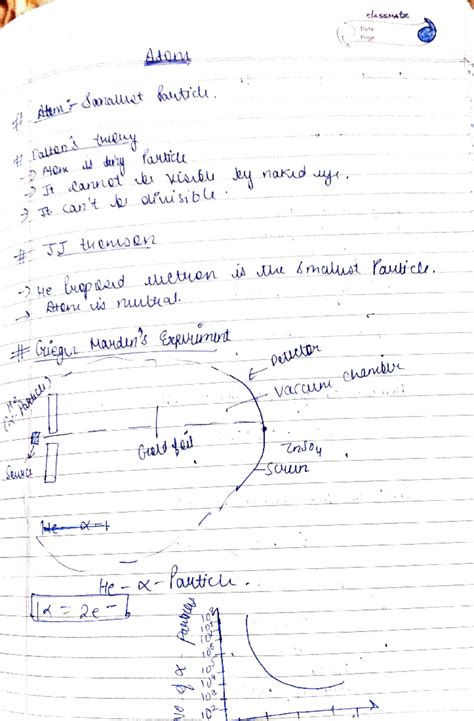 classmate
Date
Page
Atom
# Atom :- Smallest Particle.
# Dalton's theory
-> Atom is tiny Particle
-> It cannot be visible by naked eye.
-> It can't be divisible.
# JJ thomson
-> He proposed electron is the smallest Particle.
-> Atom is neutral.
# Grieger Marden's Experiment
Detector
Vacuum chamber
(α-Particles)
Gold foil
Source
ZnSO4
Screen
He - α -
He - α - Particle.
1α = 2e-
No of α - Particles
10³
10²